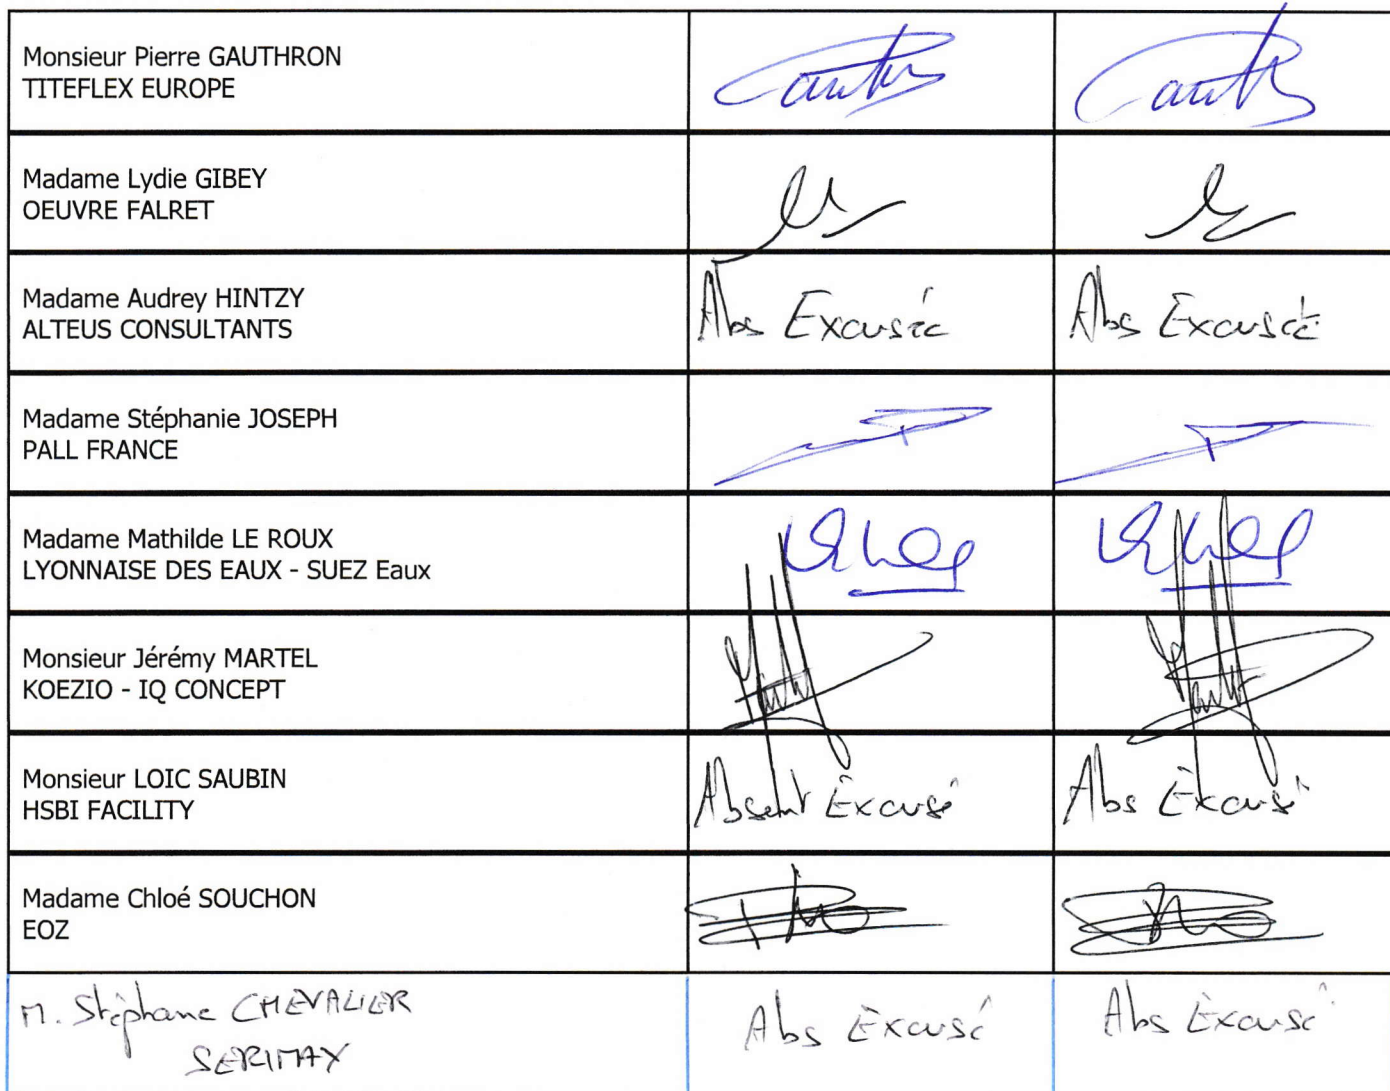 Monsieur Pierre GAUTHRON
TITEFLEX EUROPE
Madame Lydie GIBEY
OEUVRE FALRET
Madame Audrey HINTZY
ALTEUS CONSULTANTS
Abs Excusée
Abs Excusée
Madame Stéphanie JOSEPH
PALL FRANCE
Madame Mathilde LE ROUX
LYONNAISE DES EAUX - SUEZ Eaux
Monsieur Jérémy MARTEL
KOEZIO - IQ CONCEPT
Monsieur LOIC SAUBIN
HSBI FACILITY
Absent Excusé
Abs Excusé
Madame Chloé SOUCHON
EOZ
M. Stéphane CHEVALIER
SERIMAX
Abs Excusé
Abs Excusé